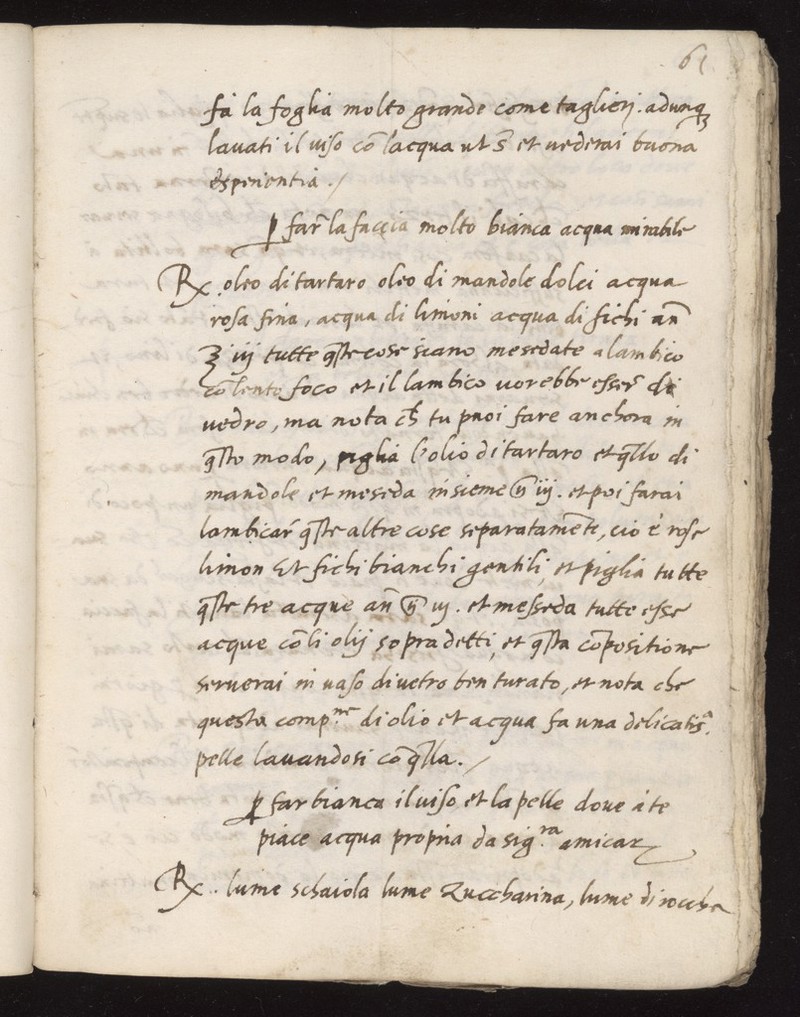 61
fa la foglia molto grande come taglieri. adunq₃
lavati il viso cō lacqua ut s̄ et vederai buona
esperientia ./
ꝑ far̄ la faccia molto bianca acqua mirabile
Rx. oleo di tartaro oleo di mandole dolci acqua
rosa fina, acqua di limoni acqua di fichi an̄
℥ iij tutte q̄ste cose siano mesedate alambico
cō lento foco et il lambico vorebbe esser̄ di
vedro, ma nota ch̄ tu puoi fare anchora in
q̄sto modo, piglia l'olio di tartaro et q̄llo di
mandole et meseda insieme iij. et poi farai
lambicar̄ q̄ste altre cose separatamēte, cio è rose
limon Et fichi bianchi gentili, et piglia tutte
q̄ste tre acque an̄ iij. et messeda tutte esse
acque cō li olij sopradetti, et q̄sta cōpositione
serverai in vaso di vetro ben turato, et nota che
questa comp.ne di olio et acqua fa una delicatis.a
pelle lavandosi cō q̄lla ./
ꝑ far bianca il viso et la pelle dove à te
piace acqua propria da sig.ra amicar
Rx.. lume schaiola lume Zuccharina, lume di roccha